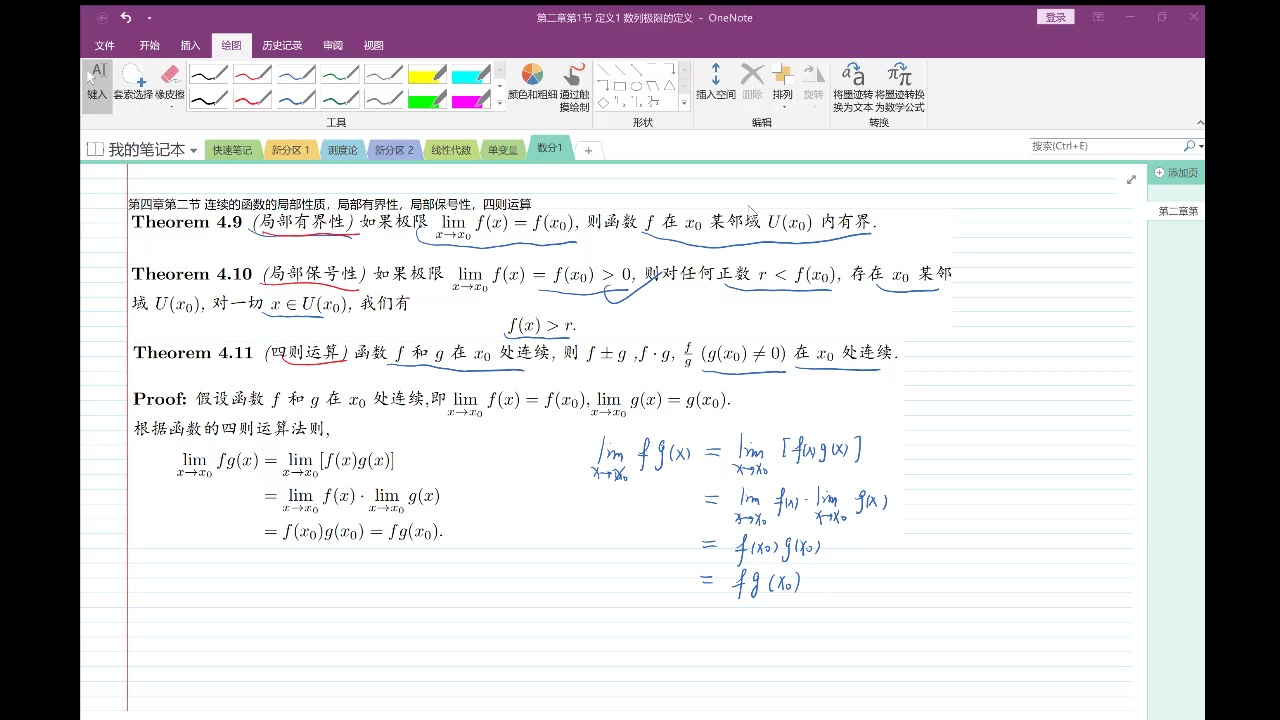 第二章第1节 定义1 数列极限的定义 - OneNote
登录
文件 开始 插入 绘图 历史记录 审阅 视图
键入 套索选择 橡皮擦 颜色和粗细 通过触摸绘制 插入空间 删除 排列 旋转 将墨迹转换为文本 将墨迹转换为数学公式
工具 形状 编辑 转换
我的笔记本 快速笔记 新分区 1 测度论 新分区 2 线性代数 单变量 数分1 +
搜索(Ctrl+E)
添加页
第二章第
第四章第二节 连续的函数的局部性质，局部有界性，局部保号性，四则运算
Theorem 4.9 (局部有界性) 如果极限 lim x→x₀ f(x) = f(x₀), 则函数 f 在 x₀ 某邻域 U(x₀) 内有界.
Theorem 4.10 (局部保号性) 如果极限 lim x→x₀ f(x) = f(x₀) > 0, 则对任何正数 r < f(x₀), 存在 x₀ 某邻
域 U(x₀), 对一切 x ∈ U(x₀), 我们有
f(x) > r.
Theorem 4.11 (四则运算) 函数 f 和 g 在 x₀ 处连续, 则 f ± g ,f · g, f/g (g(x₀) ≠ 0) 在 x₀ 处连续.
Proof: 假设函数 f 和 g 在 x₀ 处连续,即 lim x→x₀ f(x) = f(x₀), lim x→x₀ g(x) = g(x₀).
根据函数的四则运算法则,
lim x→x₀ fg(x) = lim x→x₀ [f(x)g(x)]
= lim x→x₀ f(x) · lim x→x₀ g(x)
= f(x₀)g(x₀) = fg(x₀).
lim x→x₀ fg(x) = lim x→x₀ [f(x)g(x)]
= lim x→x₀ f(x) · lim x→x₀ g(x)
= f(x₀)g(x₀)
= fg(x₀)